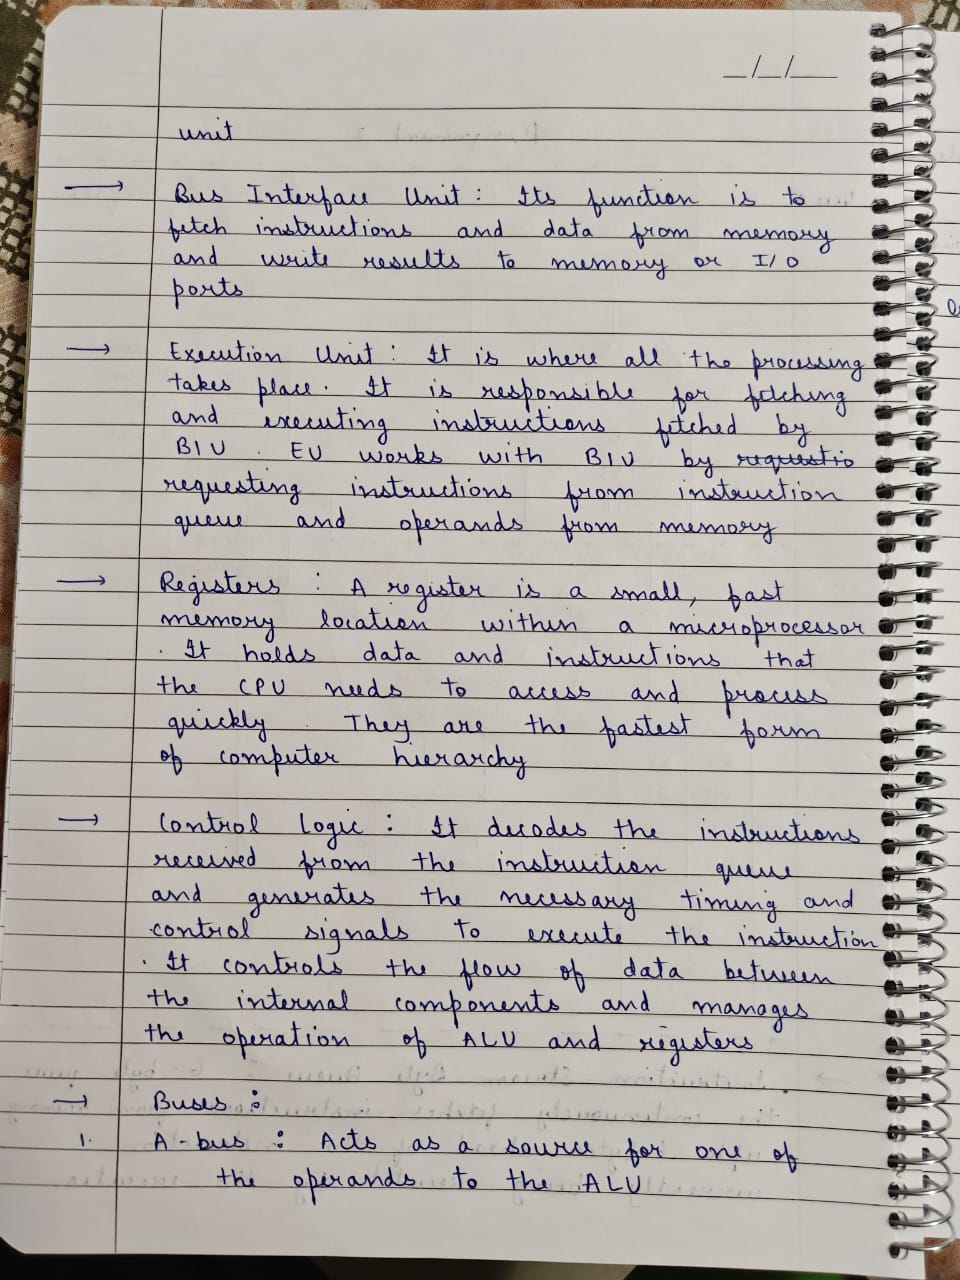 _/_/__
unit
→ Bus Interface Unit : Its function is to
fetch instructions and data from memory
and write results to memory or I/O
ports
→ Execution Unit : It is where all the processing
takes place. It is responsible for fetching
and executing instructions fetched by
BIU . EU works with BIU by requestio
requesting instructions from instruction
queue and operands from memory
→ Registers : A register is a small, fast
memory location within a microprocessor
. It holds data and instructions that
the CPU needs to access and process
quickly . They are the fastest form
of computer hierarchy
→ Control Logic : It decodes the instructions
received from the instruction queue
and generates the necessary timing and
control signals to execute the instruction
. It controls the flow of data between
the internal components and manages
the operation of ALU and registers
→ Buses :
1. A-bus : Acts as a source for one of
the operands to the ALU